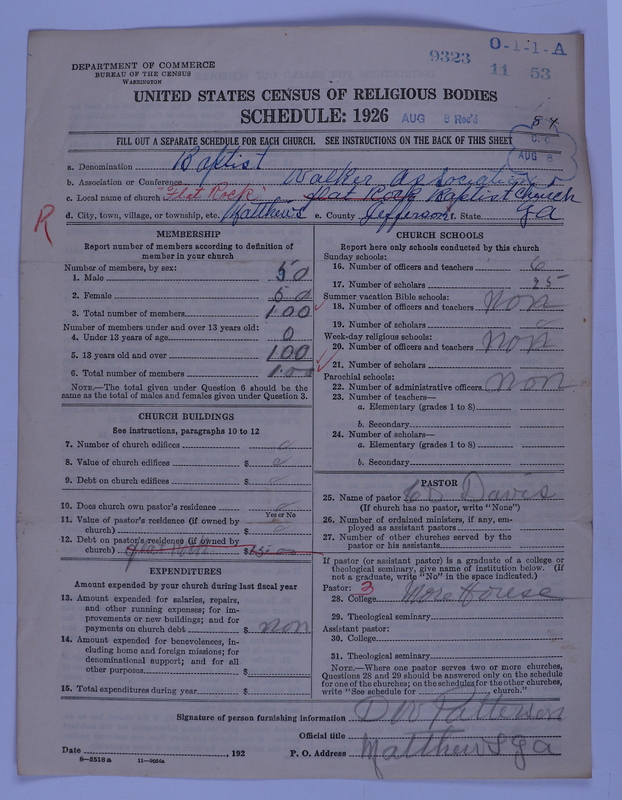 9323
0-1-1-A
11 53
DEPARTMENT OF COMMERCE
BUREAU OF THE CENSUS
WASHINGTON
UNITED STATES CENSUS OF RELIGIOUS BODIES
SCHEDULE: 1926 AUG 8 Rec'd
FILL OUT A SEPARATE SCHEDULE FOR EACH CHURCH. SEE INSTRUCTIONS ON THE BACK OF THIS SHEET
AUG 8
a. Denomination Baptist
b. Association or Conference Walker Association
c. Local name of church "Flat Rock" Flat Rock Baptist Church
d. City, town, village, or township, etc. Matthews e. County Jefferson f. State Ga
R
MEMBERSHIP
Report number of members according to definition of
member in your church
Number of members, by sex:
1. Male 50
2. Female 50
3. Total number of members 100
Number of members under and over 13 years old:
4. Under 13 years of age 0
5. 13 years old and over 100
6. Total number of members 100
NOTE.—The total given under Question 6 should be the
same as the total of males and females given under Question 3.
CHURCH BUILDINGS
See instructions, paragraphs 10 to 12
7. Number of church edifices
8. Value of church edifices $
9. Debt on church edifices $
10. Does church own pastor's residence
Yes or No
11. Value of pastor's residence (if owned by
church) $
12. Debt on pastor's residence (if owned by
church) $
EXPENDITURES
Amount expended by your church during last fiscal year
13. Amount expended for salaries, repairs,
and other running expenses; for im-
provements or new buildings; and for
payments on church debt $ non
14. Amount expended for benevolences, in-
cluding home and foreign missions; for
denominational support; and for all
other purposes $
15. Total expenditures during year $
CHURCH SCHOOLS
Report here only schools conducted by this church
Sunday schools:
16. Number of officers and teachers 6
17. Number of scholars 25
Summer vacation Bible schools:
18. Number of officers and teachers Non
19. Number of scholars
Week-day religious schools:
20. Number of officers and teachers Non
21. Number of scholars
Parochial schools:
22. Number of administrative officers Non
23. Number of teachers—
a. Elementary (grades 1 to 8)
b. Secondary
24. Number of scholars—
a. Elementary (grades 1 to 8)
b. Secondary
PASTOR
25. Name of pastor Davis
(If church has no pastor, write "None")
26. Number of ordained ministers, if any, em-
ployed as assistant pastors
27. Number of other churches served by the
pastor or his assistants
If pastor (or assistant pastor) is a graduate of a college or
theological seminary, give name of institution below. (If
not a graduate, write "No" in the space indicated.)
Pastor: 3
28. College More House
29. Theological seminary
Assistant pastor:
30. College
31. Theological seminary
NOTE.—Where one pastor serves two or more churches,
Questions 28 and 29 should be answered only on the schedule
for one of the churches; on the schedules for the other churches,
write "See schedule for church."
Signature of person furnishing information D W Patterson
Official title
Date , 192 P. O. Address Matthews Ga
8—5518a 11—9054a